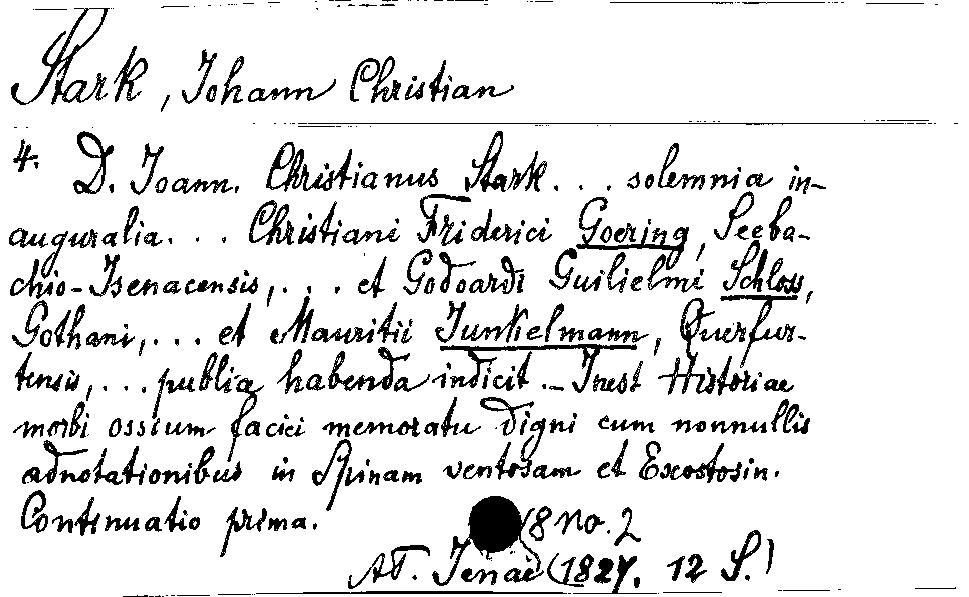 Stark, Johann Christian
4. D. Joann. Christianus Stark... solemnia in-
auguralia... Christiani Friderici Goering, Seeba-
chio-Isenacensis,... et Godoardi Guilielmi Schloss,
Gothani,... et Mauritii Junkelmann, Querfur-
tensis,... publia habenda indicit.– Inest Historiae
morbi ossium faciei memoratu digni cum nonnullis
adnotationibus in Spinam ventosam et Exostosin.
Continuatio prima.
8 no. 2
AT. Jenae (1827. 12 S.)